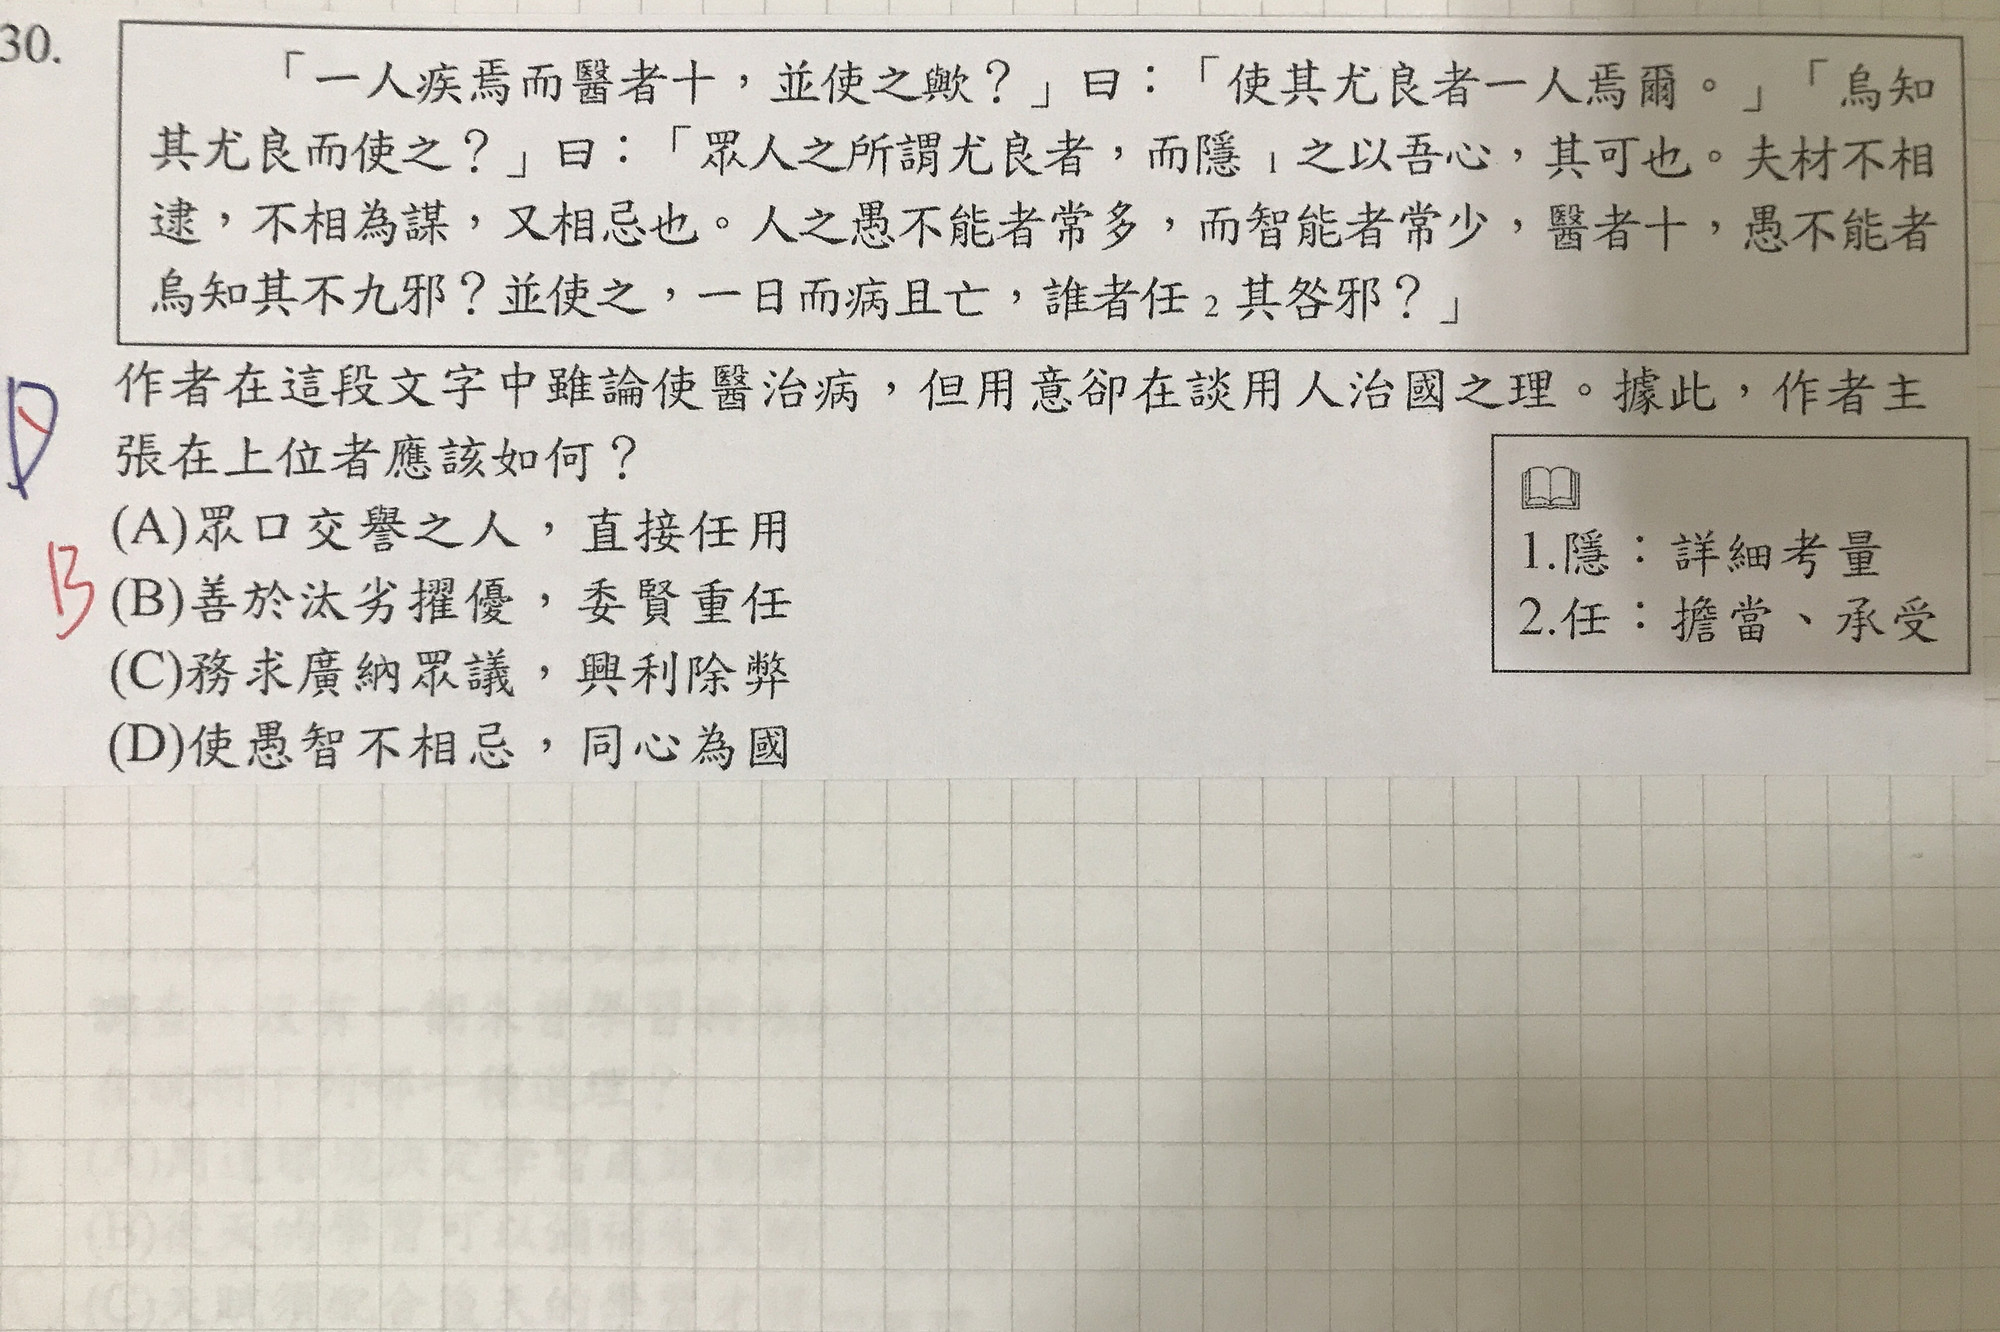 30.
「一人疾焉而醫者十，並使之歟？」曰：「使其尤良者一人焉爾。」「烏知
其尤良而使之？」曰：「眾人之所謂尤良者，而隱1之以吾心，其可也。夫材不相
逮，不相為謀，又相忌也。人之愚不能者常多，而智能者常少，醫者十，愚不能者
烏知其不九邪？並使之，一日而病且亡，誰者任2其咎邪？」
D
作者在這段文字中雖論使醫治病，但用意卻在談用人治國之理。據此，作者主
張在上位者應該如何？
(A)眾口交譽之人，直接任用
B
(B)善於汰劣擢優，委賢重任
(C)務求廣納眾議，興利除弊
(D)使愚智不相忌，同心為國
1.隱：詳細考量
2.任：擔當、承受